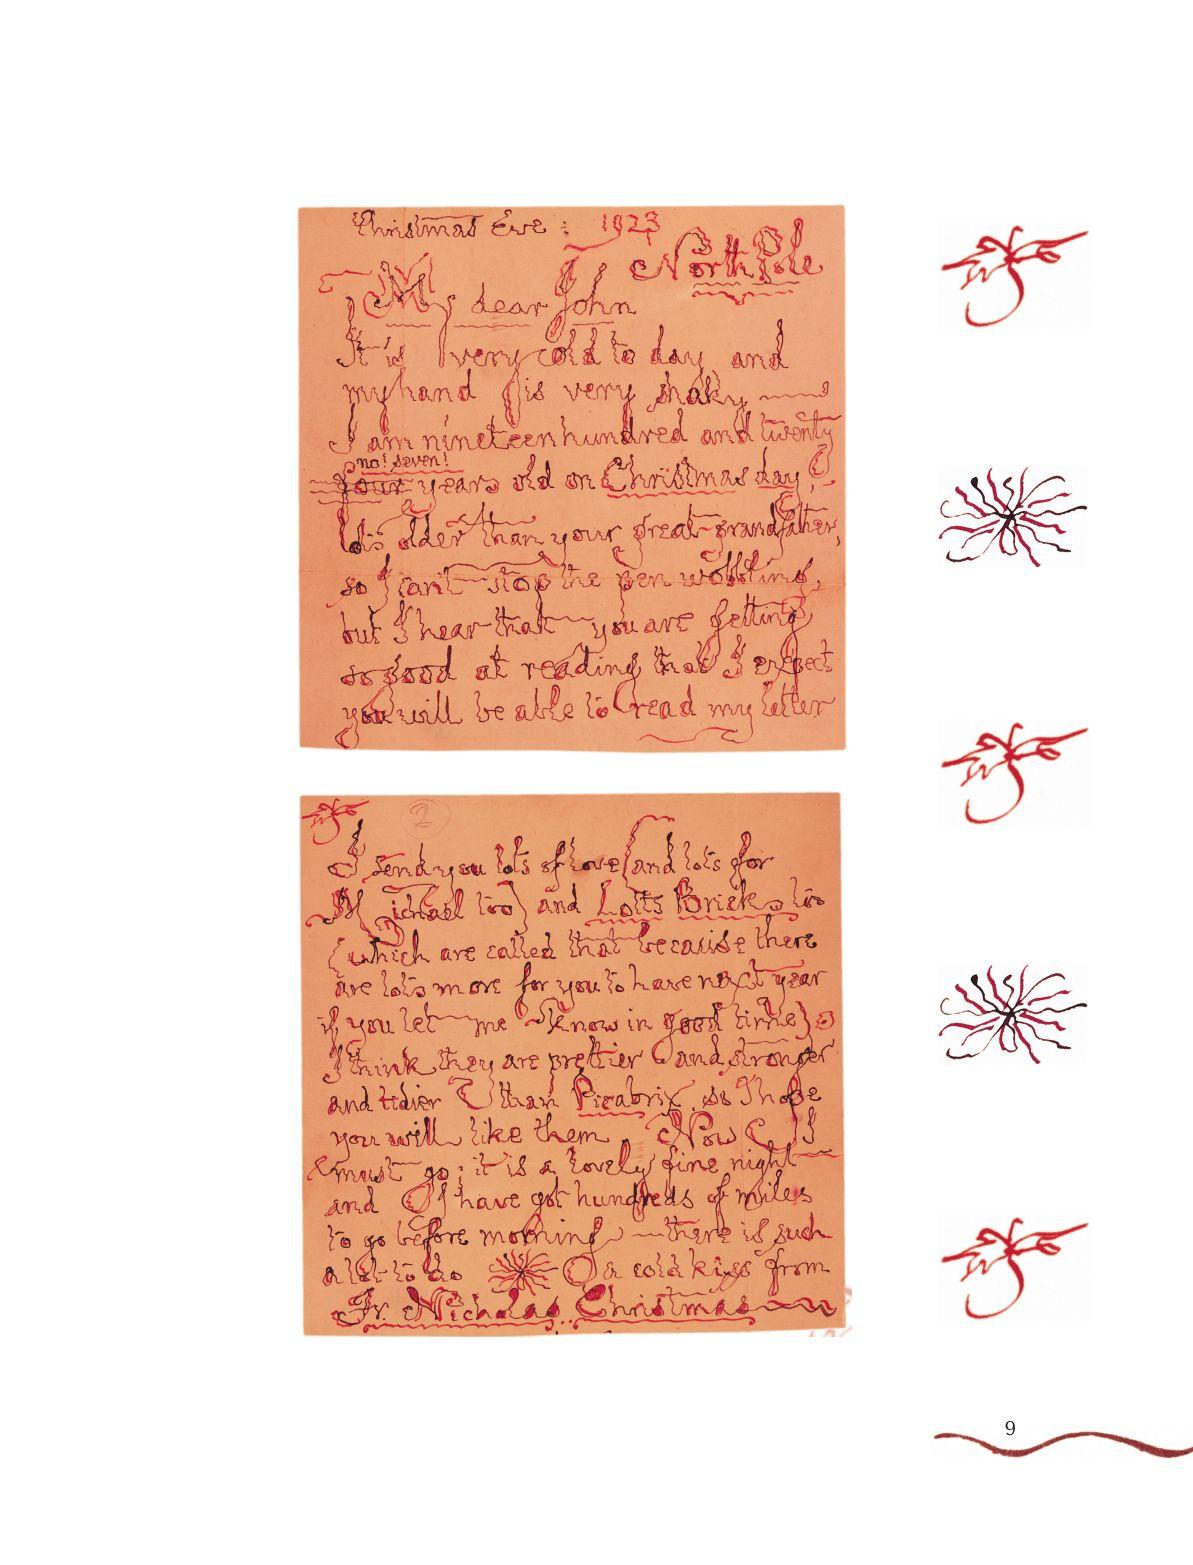 Christmas Eve : 1923
North Pole
My dear John
It is very cold to day and
my hand is very shaky
I am nineteen hundred and twenty
no! seven!
four years old on Christmas day,
lots older than your great-grandfather,
so I can't stop the pen wobbling,
but I hear that you are getting
so good at reading that I expect
you will be able to read my letter
2
I send you lots of love (and lots for
Michael too) and Lotts Bricks too
(which are called that because there
are lots more for you to have next year
if you let me know in good time)
I think they are prettier and stronger
and tidier than Picabrix so I hope
you will like them Now I
must go; it is a lovely fine night
and I have got hundreds of miles
to go before morning — there is such
a lot to do a cold kiss from
Fr. Nicholas Christmas
9